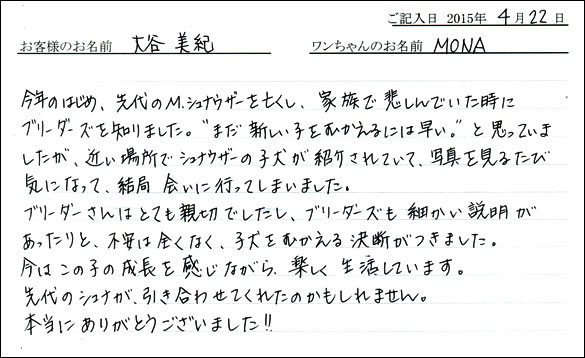 ご記入日 2015年 4月22日
お客様のお名前 大谷 美紀 ワンちゃんのお名前 MONA
今年のはじめ、先代のM.シュナウザーを亡くし、家族で悲しんでいた時に
ブリーダーズを知りました。"まだ新しい子をむかえるには早い。"と思っていま
したが、近い場所でシュナウザーの子犬が紹介されていて、写真を見るたび
気になって、結局会いに行ってしまいました。
ブリーダーさんはとても親切でしたし、ブリーダーズも細かい説明が
あったりと、不安は全くなく、子犬をむかえる決断がつきました。
今はこの子の成長を感じながら、楽しく生活しています。
先代のシュナが、引き合わせてくれたのかもしれません。
本当にありがとうございました!!